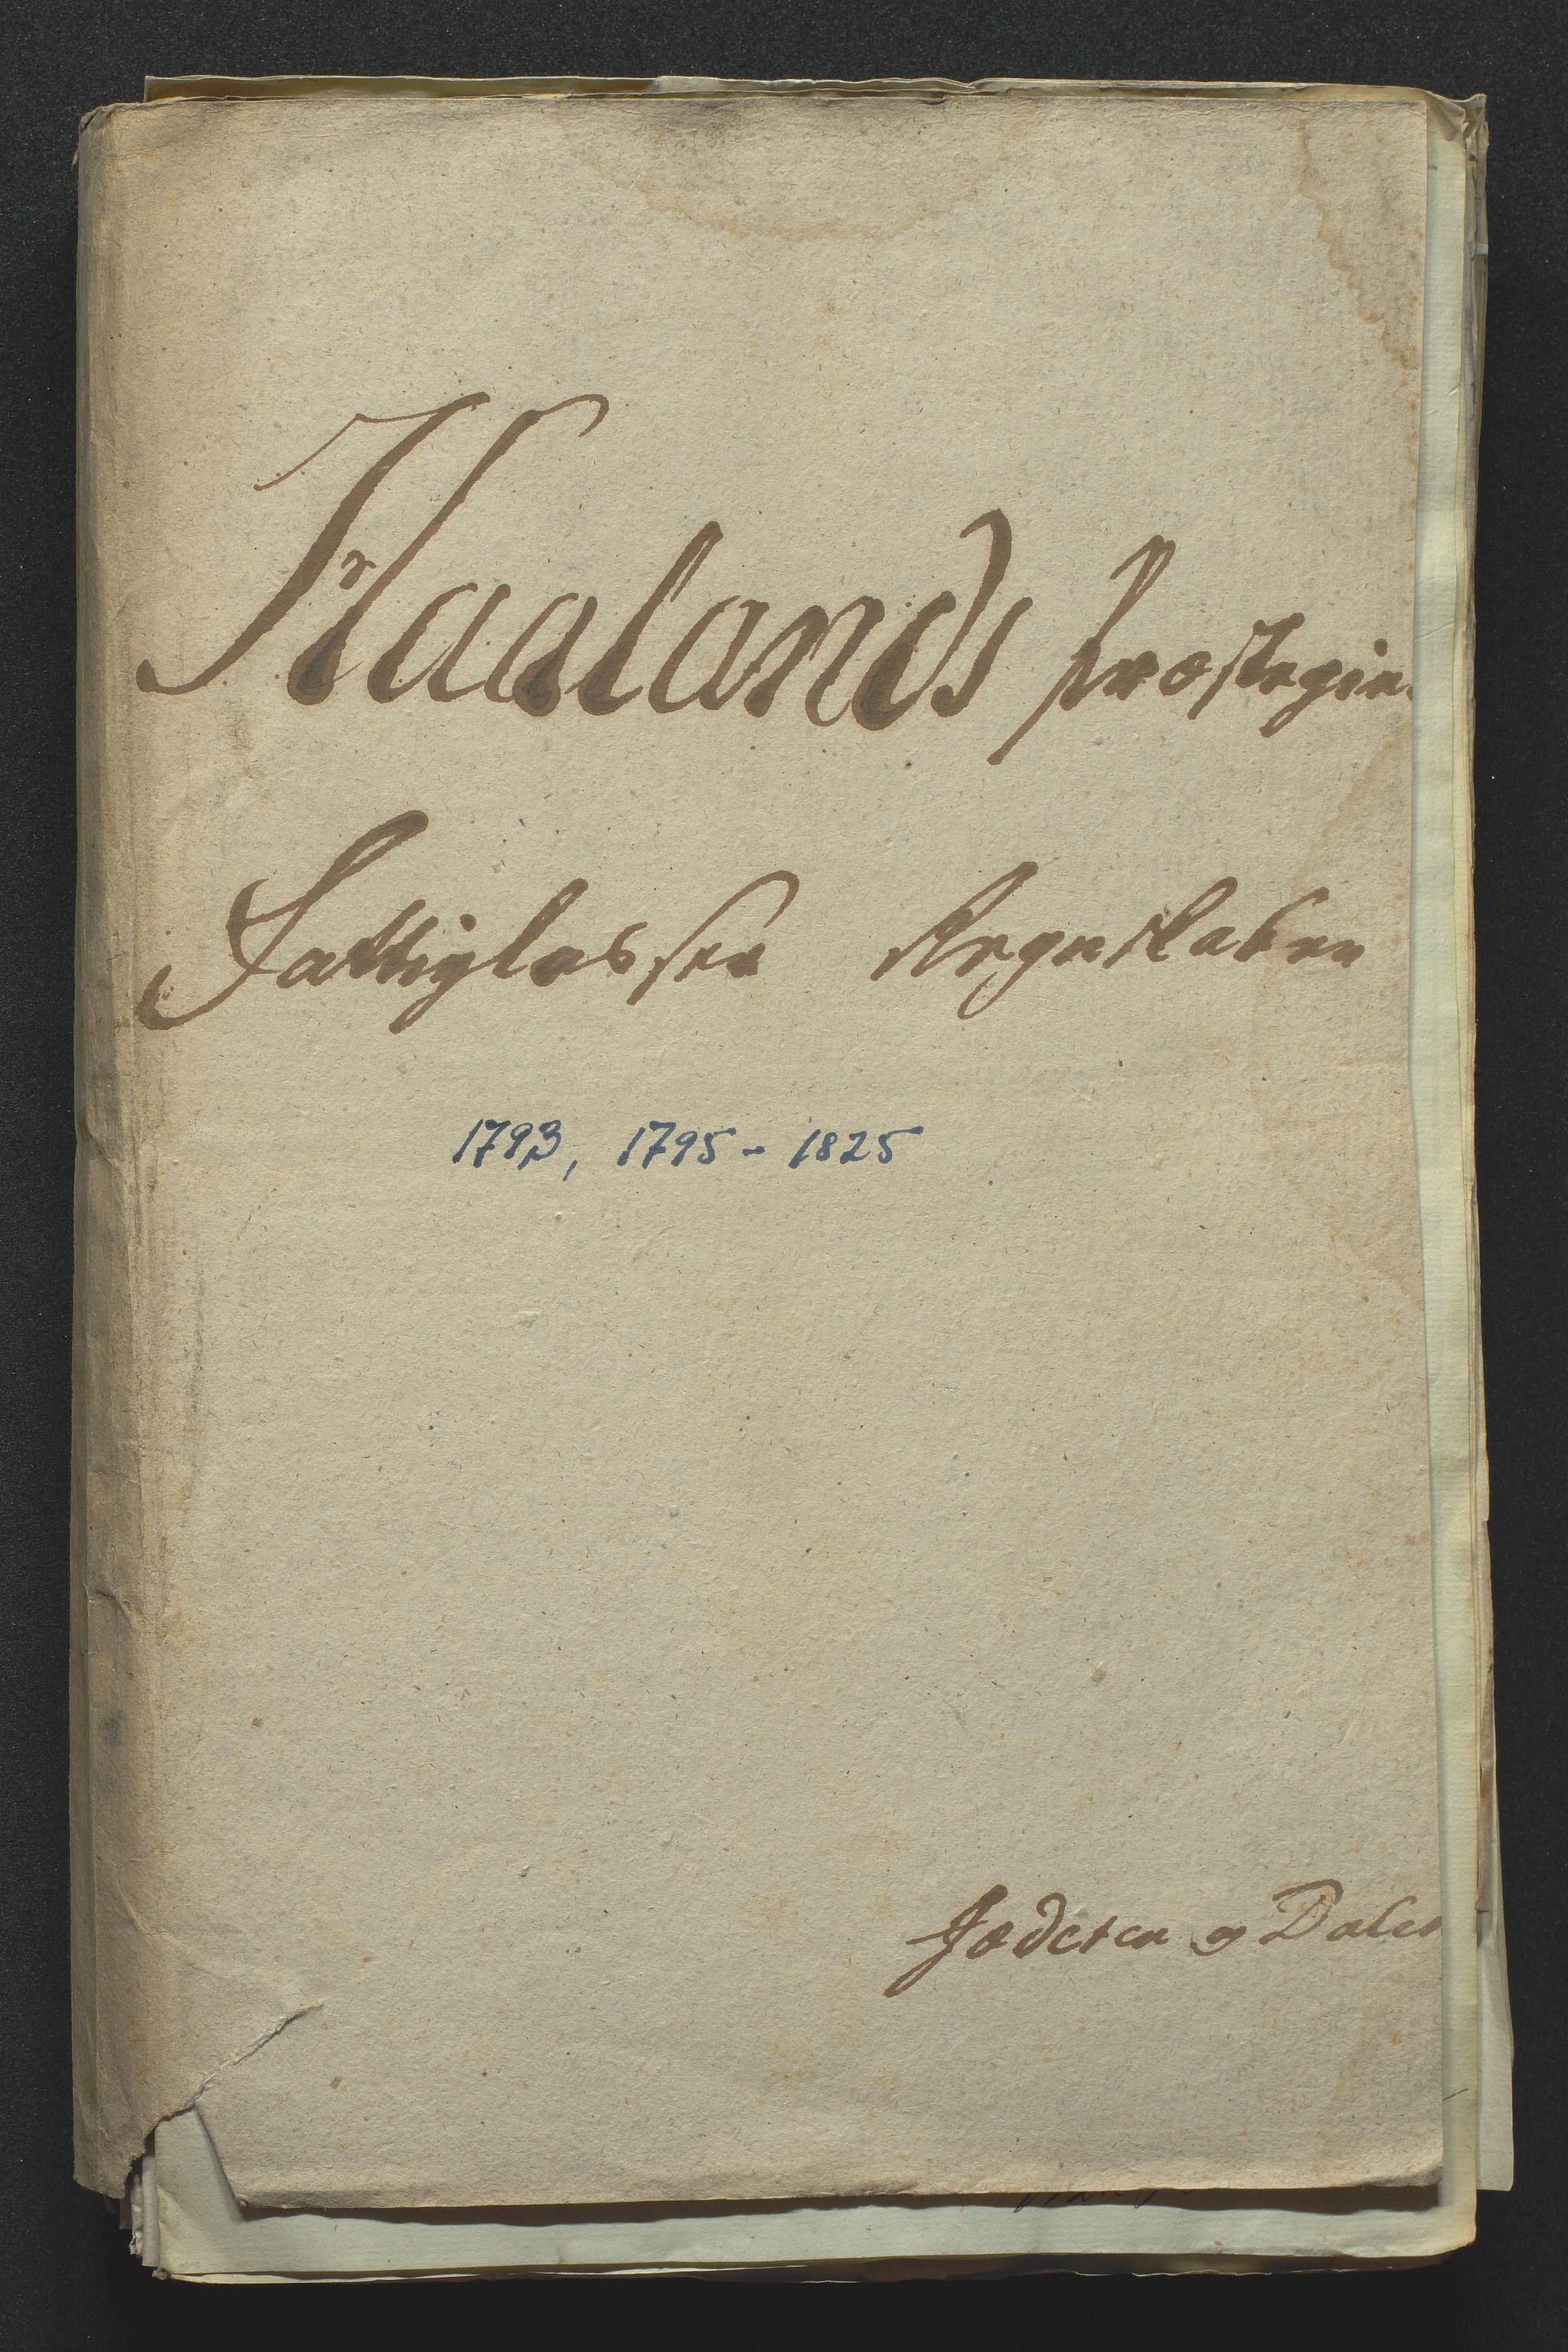 Haalands Præstegie
Fattigkasses Regnskaber
1793, 1795 - 1825
Jæderen og Dalen